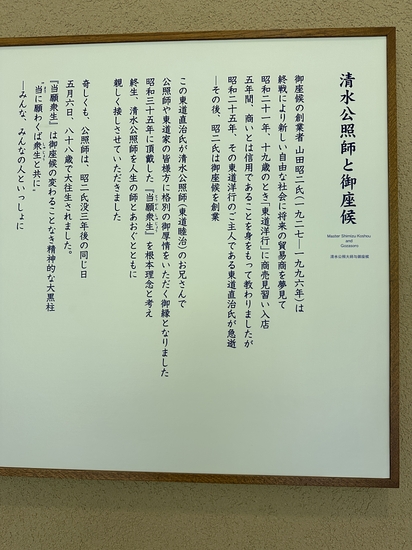 清水公照師と御座候
Master Shimizu Kosho
and
Gozasoro
清水公照大師与御座候
御座候の創業者 山田昭二氏(一九二七―一九九六年)は
終戦により新しい自由な社会に将来の貿易商を夢見て
昭和二十一年、十九歳のとき「東道洋行」に商売見習い入店
五年間、商いとは信用であることを身をもって教わりましたが
昭和二十五年、その東道洋行のご主人である東道直治氏が急逝
―その後、昭二氏は御座候を創業
この東道直治氏が清水公照師(東道睦治)のお兄さんで
公照師や東道家の皆様方に格別の御厚情をいただく御縁となりました
昭和三十五年に頂戴した『当願衆生』を根本理念と考え
終生、清水公照師を人生の師とあおぐとともに
親しく接しさせていただきました
奇しくも、公照師は、昭二氏没三年後の同じ日
五月六日、八十八歳で大往生されました。
『当願衆生』は御座候の変わることなき精神的な大黒柱
"当に願わくば衆生と共に"
―みんな、みんなの人といっしょに